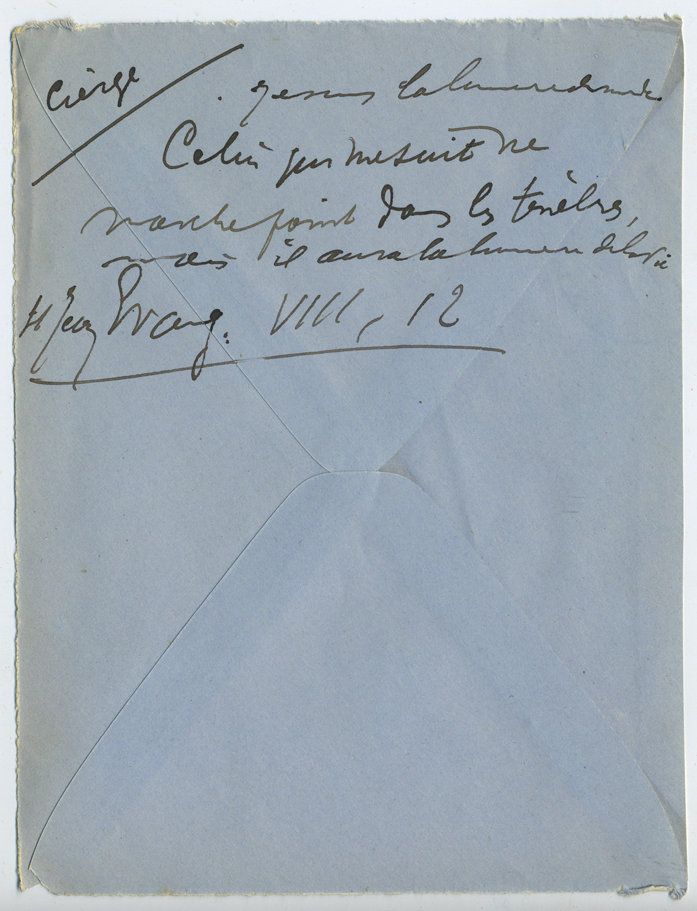 Cièrge
Je suis la lumiere du monde
Celui qui me suit ne
marche point dans les tenèbres,
mais il aura la lumiere de la vie
St Jean Evang. VIII, 12